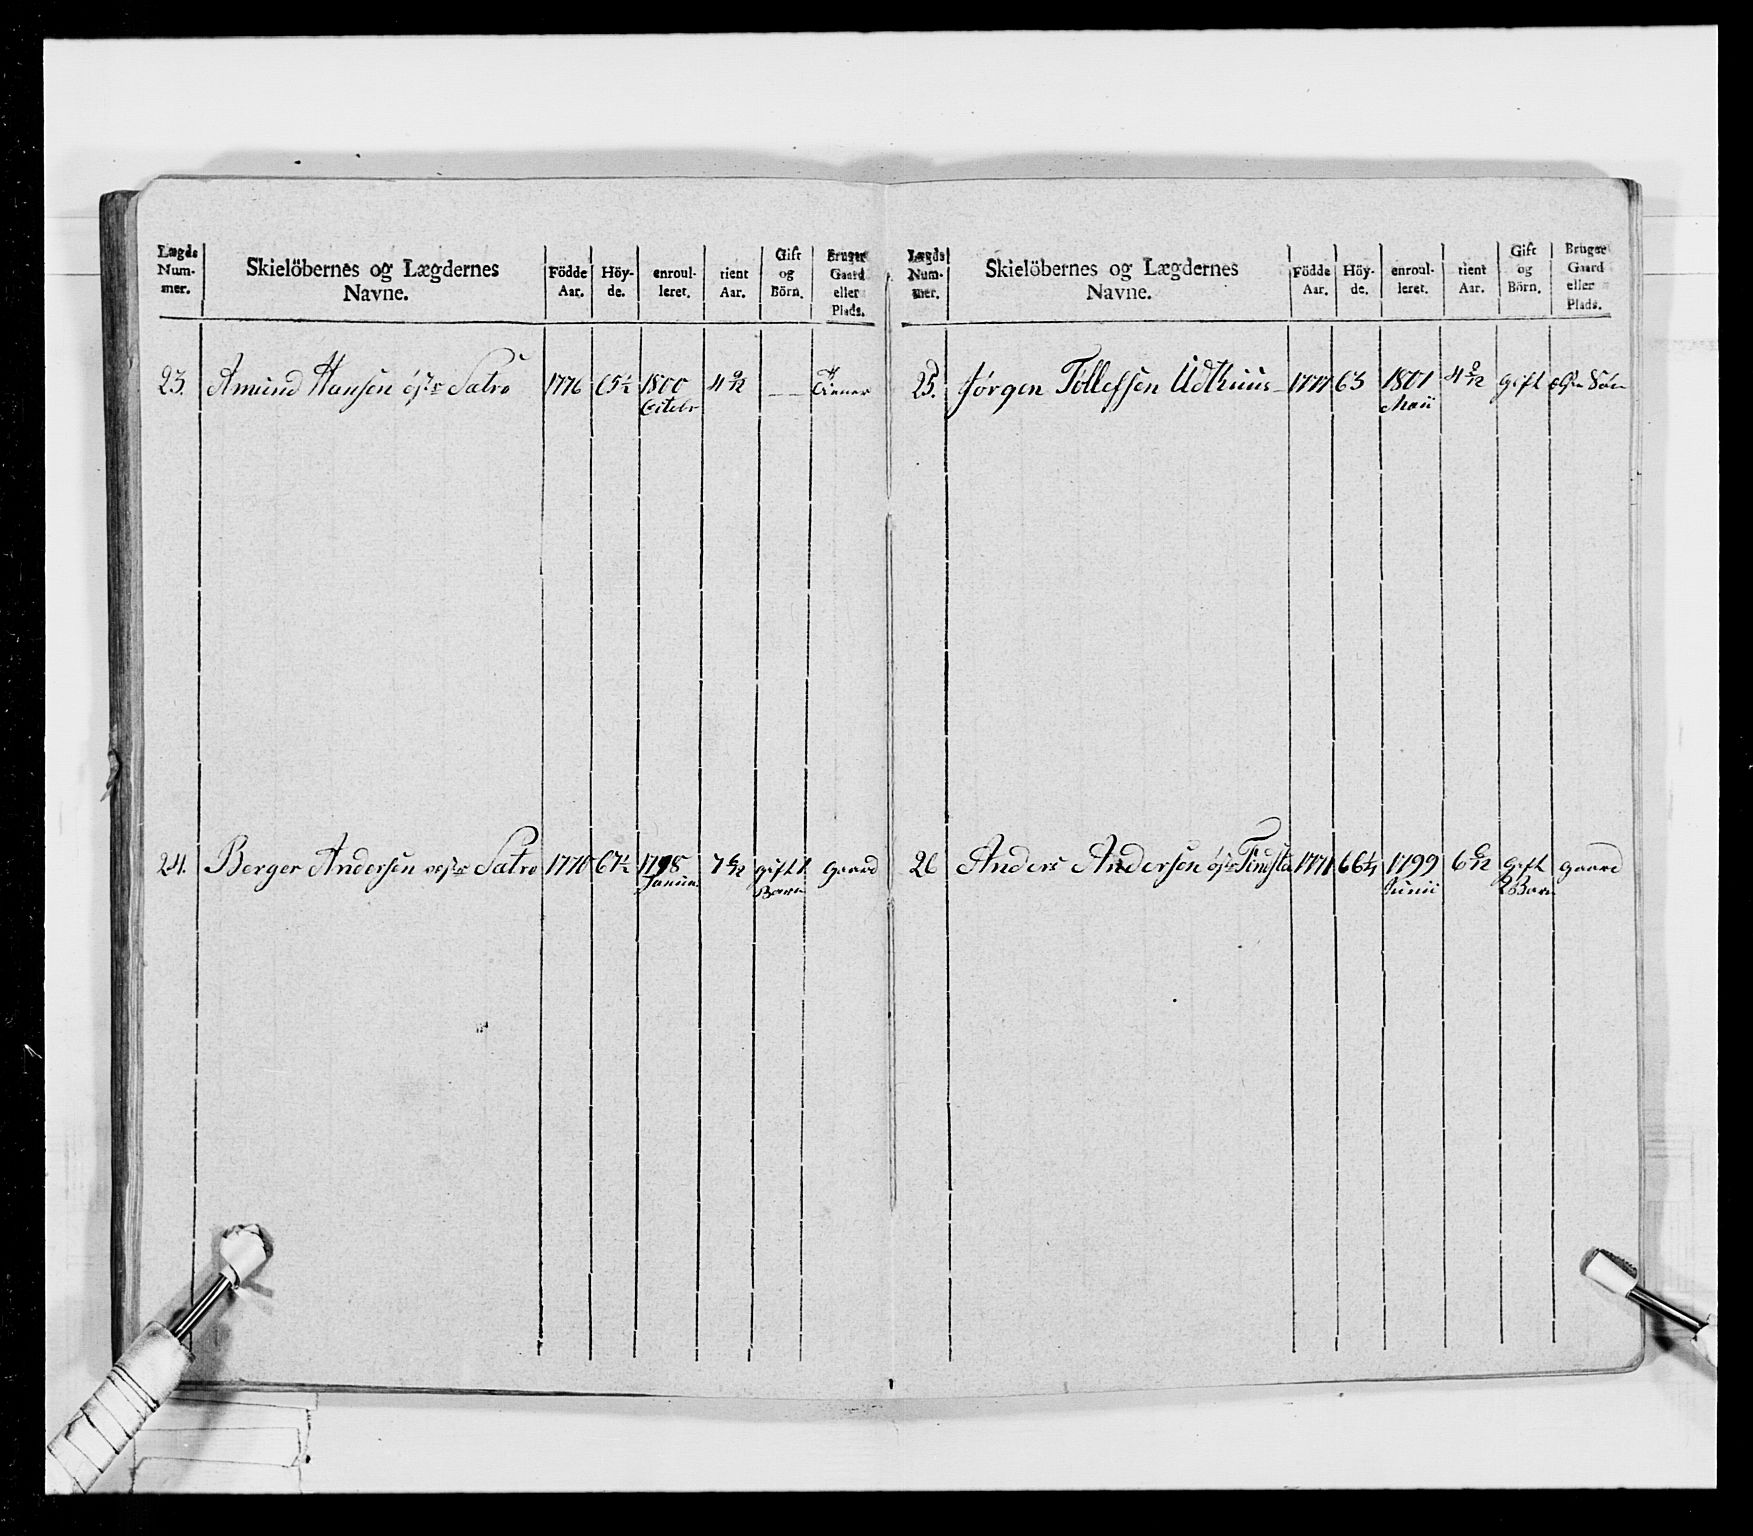 Lægds Num- mer. | Skielöbernes og Lægdernes Navne. | Födde Aar. | Höy- de. | enroul- leret. | tient Aar. | Gift og Börn. | Bruger Gaard eller Plads.
23. Amund Hansen östr Satre 1776 65½ 1800 4 9/12 — Tiener
Octobr
24. Berger Andersen vestr Satre 1770 67½ 1798 7 6/12 gift 1 gaard
Januar Barn
Lægds Num- mer. | Skielöbernes og Lægdernes Navne. | Födde Aar. | Höy- de. | enroul- leret. | tient Aar. | Gift og Börn. | Bruger Gaard eller Plads.
25. Jørgen Tollefsen Udthuus 1777 63 1801 4 2/12 gift
Maii
26 Anders Andersen östr 1771 66¼ 1799 6 6/12 gift gaard
Junii 2 Barn